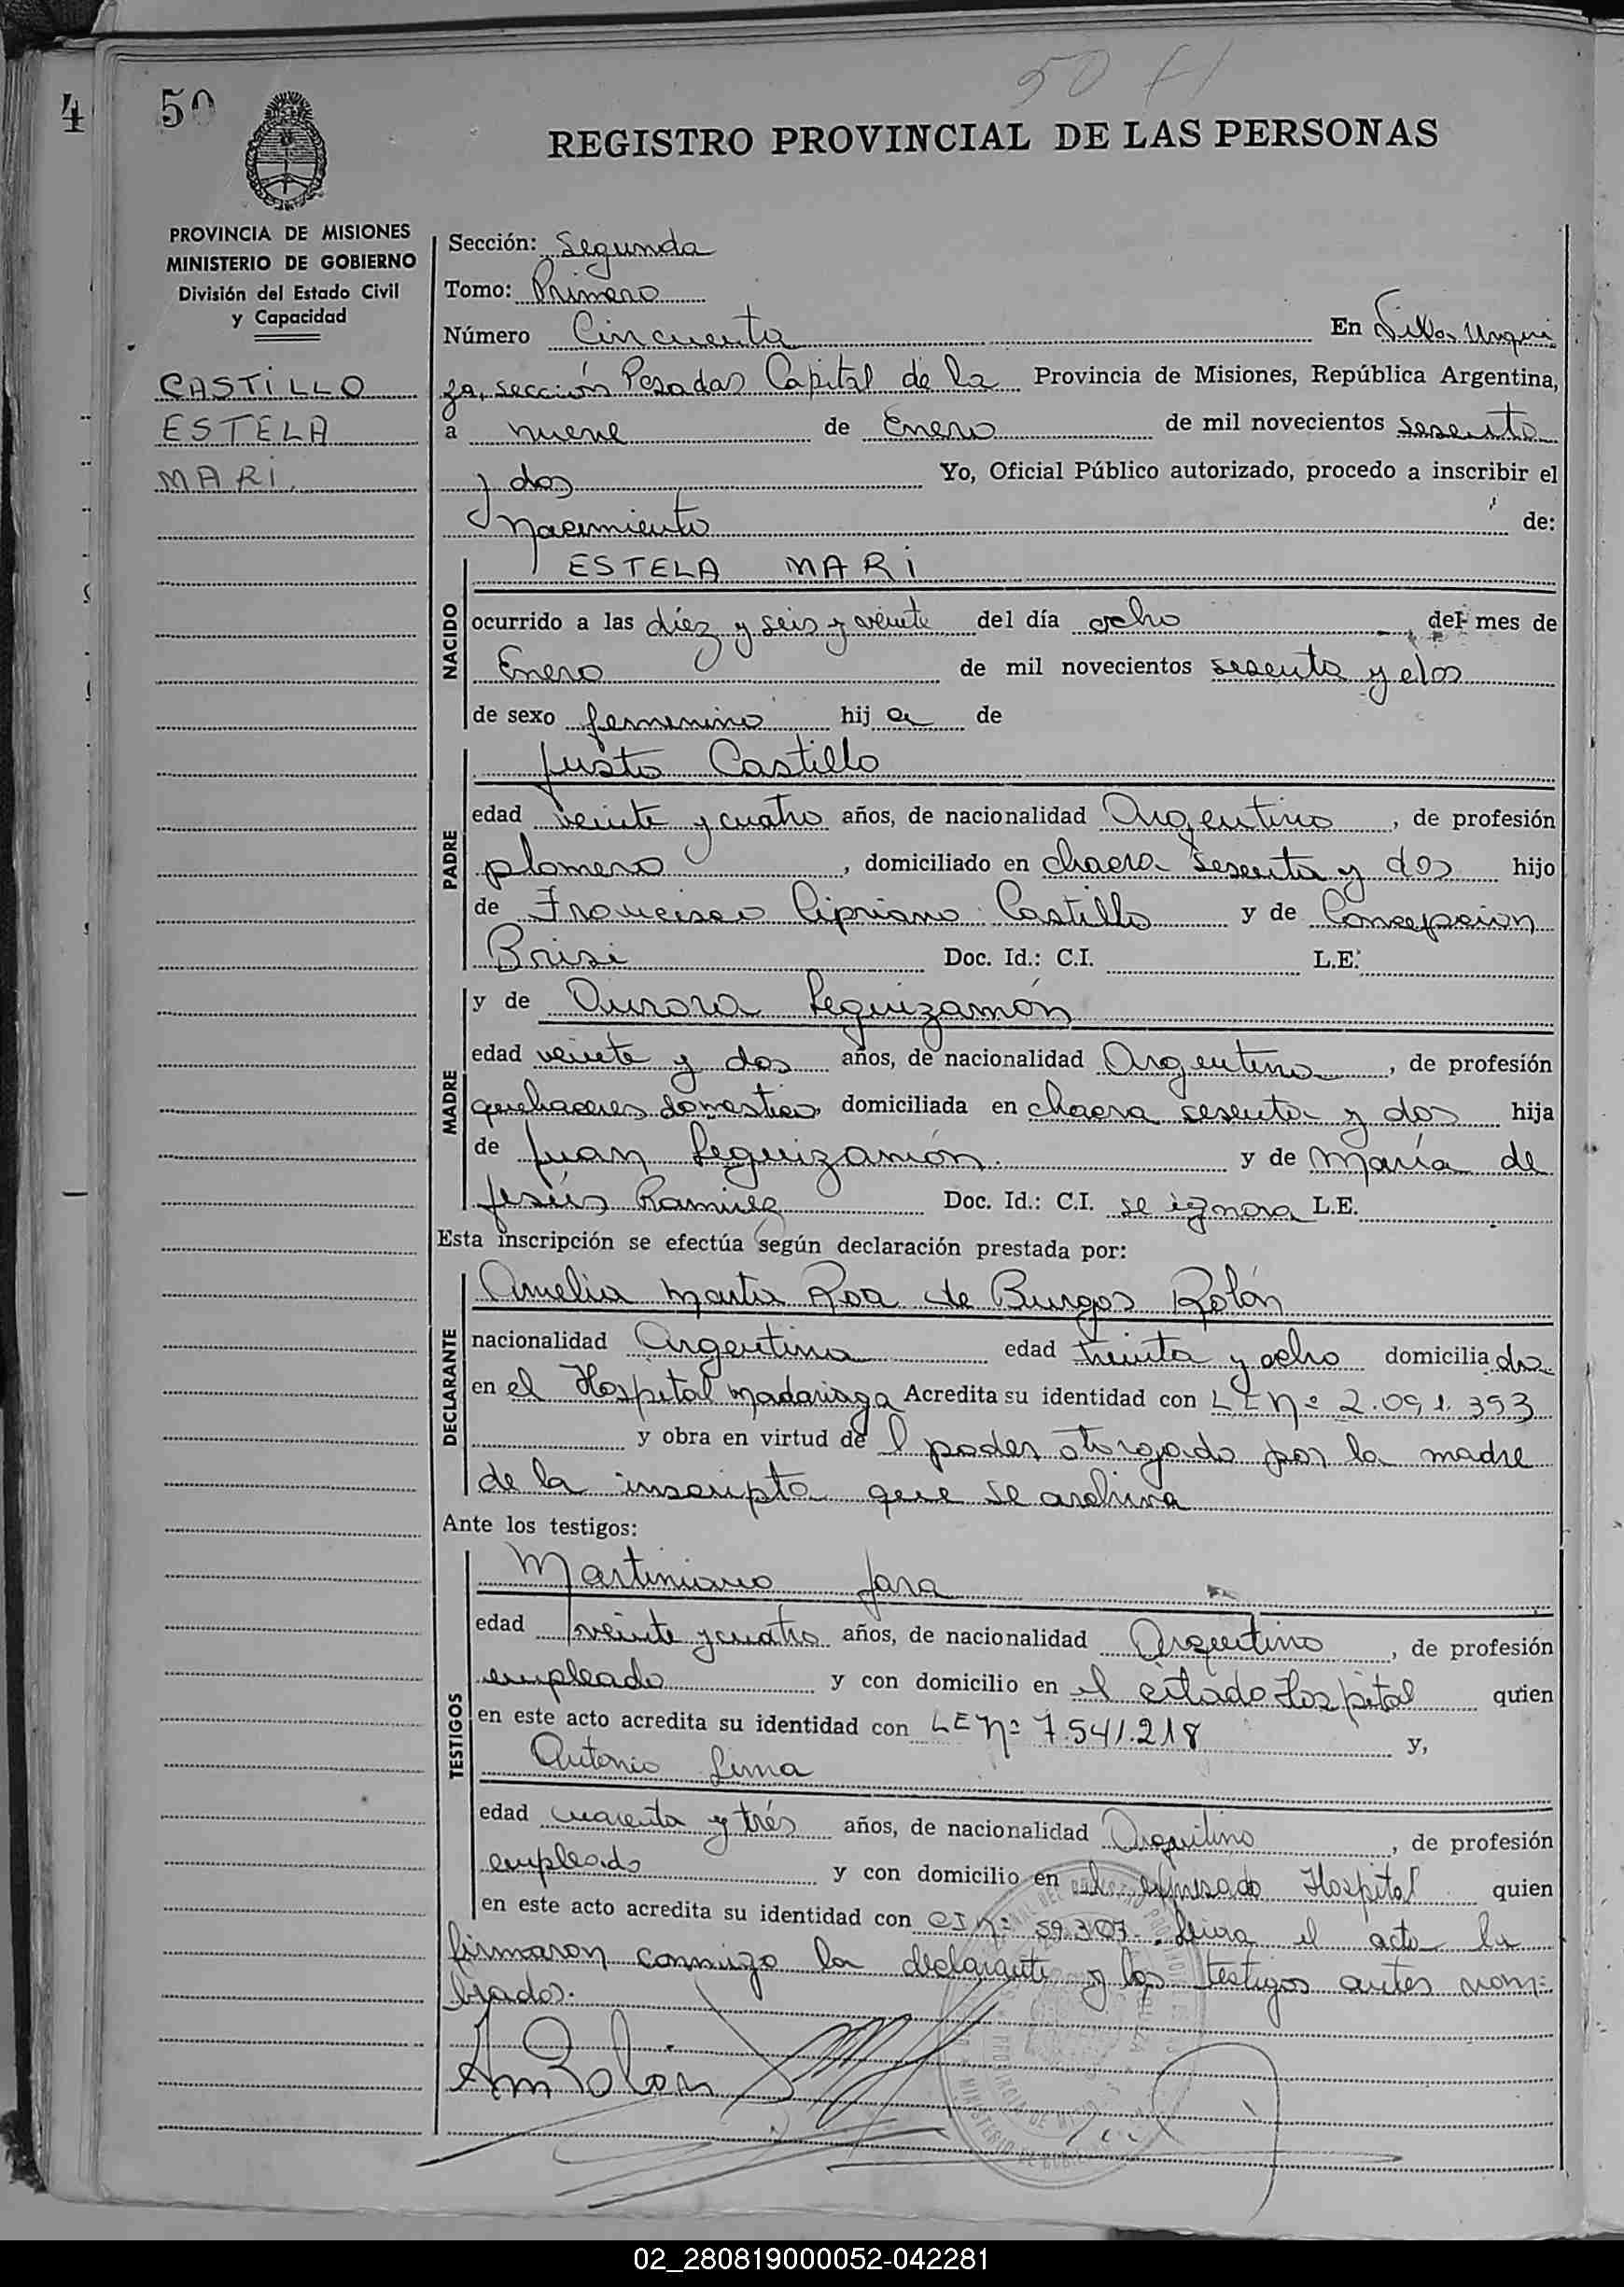 50 f1
4
50
REGISTRO PROVINCIAL DE LAS PERSONAS
PROVINCIA DE MISIONES
MINISTERIO DE GOBIERNO
División del Estado Civil
y Capacidad
CASTILLO
ESTELA
MARI.
Sección: Segunda
Tomo: Primero
Número Cincuenta En Villa Urqui
za, sección Posadas Capital de la Provincia de Misiones, República Argentina,
a nueve de Enero de mil novecientos sesenta
y dos Yo, Oficial Público autorizado, procedo a inscribir el
Nacimiento de:
NACIDO
ESTELA MARI
ocurrido a las diéz y seis y veinte del día ocho del mes de
Enero de mil novecientos sesenta y dos
de sexo femenino hij a de
PADRE
Justo Castillo
edad veinte y cuatro años, de nacionalidad Argentino, de profesión
plomero, domiciliado en chacra sesenta y dos hijo
de Francisco Cipriano Castillo y de Concepcion
Brisi Doc. Id.: C.I. L.E.
MADRE
y de Aurora Leguizamón
edad veinte y dos años, de nacionalidad Argentina, de profesión
quehaceres domesticos domiciliada en chacra sesenta y dos hija
de Juan Leguizamón y de María de
Jesús Ramirez Doc. Id.: C.I. se ignora L.E.
Esta inscripción se efectúa según declaración prestada por:
DECLARANTE
Amelia Marta Roa de Burgos Rolón
nacionalidad Argentina edad treinta y ocho domicilia da
en el Hospital Madariaga Acredita su identidad con L E Nº 2.091.353
y obra en virtud de l poder otorgado por la madre
de la inscripta que se archiva
Ante los testigos:
TESTIGOS
Martiniano Jara
edad veinte y cuatro años, de nacionalidad Argentino, de profesión
empleado y con domicilio en el citado Hospital quien
en este acto acredita su identidad con L E Nº 7.541.218 y,
Antonio Lima
edad cuarenta y trés años, de nacionalidad Argentino, de profesión
empleado y con domicilio en el expresado Hospital quien
en este acto acredita su identidad con C I Nº 59.307. Leida el acta la
firmaron conmigo la declarante y los testigos antes nom=
brados.
AmRolon
02_280819000052-042281